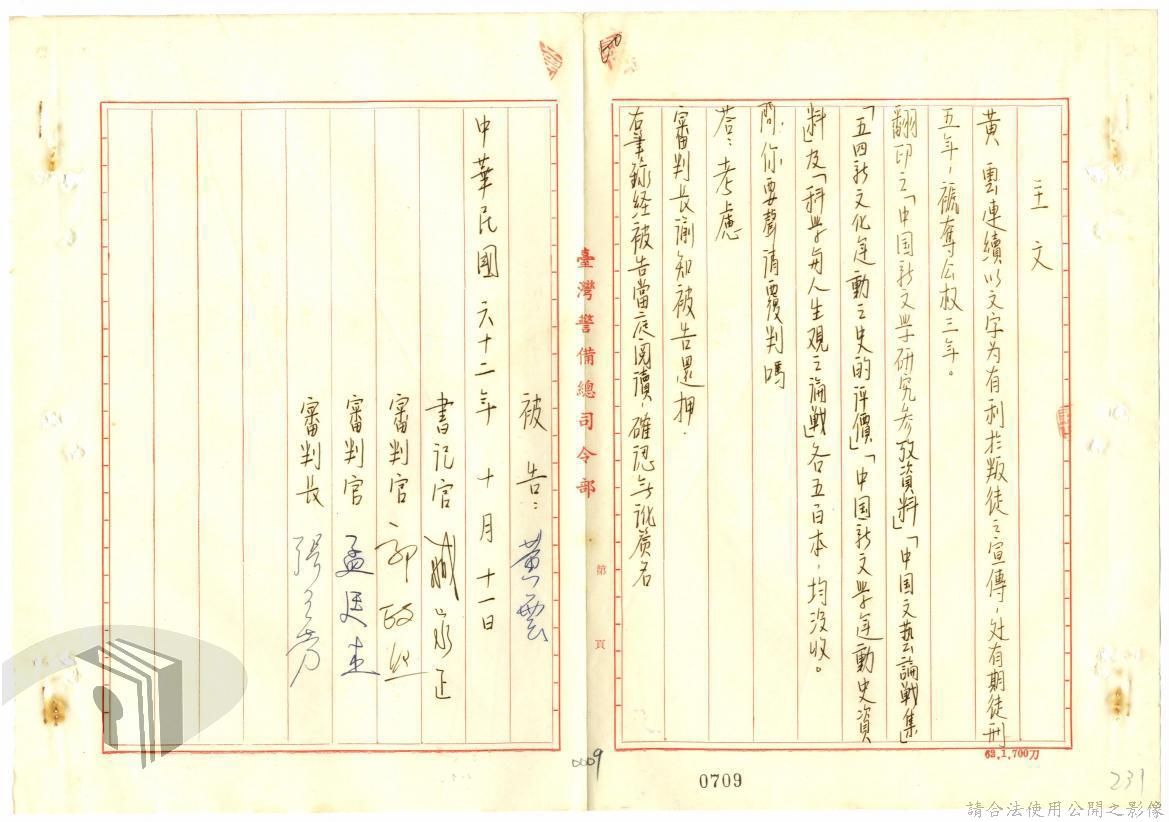 主文
黃雲連續以文字为有利於叛徒之宣傳，处有期徒刑
五年，褫奪公权三年。
翻印之「中国新文學研究参攷資料」「中国文艺論戰集」
「五四新文化運動之史的評價」「中国新文學運動史資
料」及「科學与人生观之論戰」各五百本，均沒收。
問：你要聲請覆判嗎
答：考慮
審判長諭知被告還押．
右筆錄経被告當庭閱讀，確認無訛簽名
臺灣警備總司令部
第 頁
被告：黃雲
書記官 正
審判官 郭政
審判官 孟廷杰
審判長
中華民國六十二年十月十一日
62,1,700刀
0009
0709
231
請合法使用公開之影像